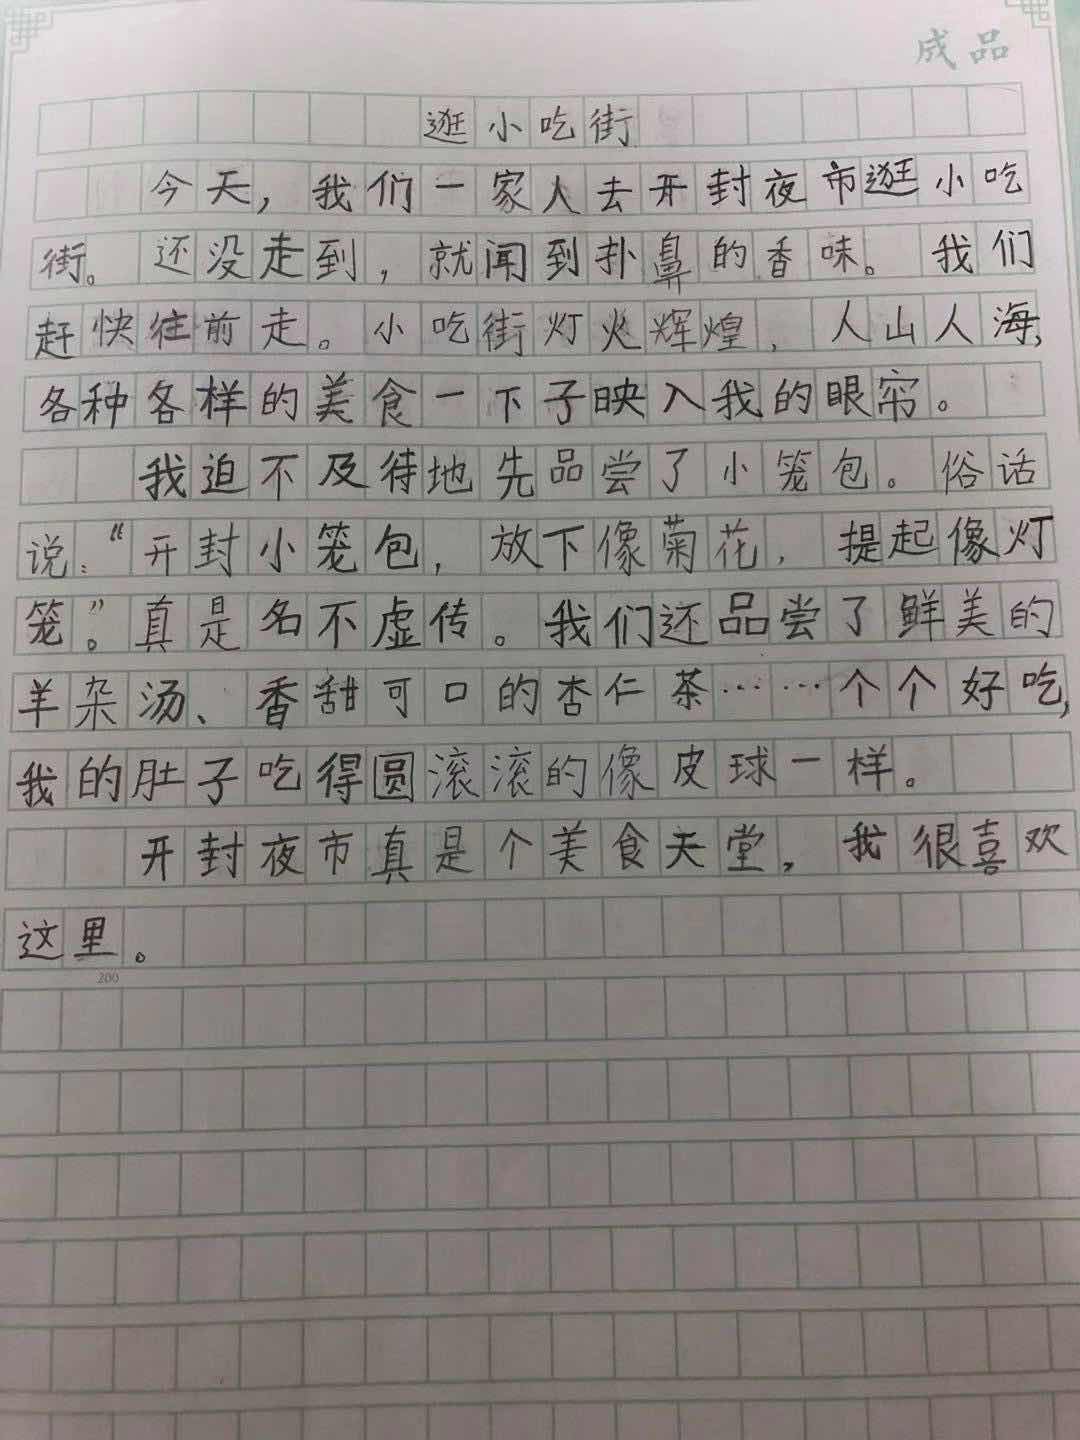 成品
逛小吃街
今天，我们一家人去开封夜市逛小吃
街。还没走到，就闻到扑鼻的香味。我们
赶快往前走。小吃街灯火辉煌，人山人海，
各种各样的美食一下子映入我的眼帘。
我迫不及待地先品尝了小笼包。俗话
说：“开封小笼包，放下像菊花，提起像灯
笼。”真是名不虚传。我们还品尝了鲜美的
羊杂汤、香甜可口的杏仁茶……个个好吃，
我的肚子吃得圆滚滚的像皮球一样。
开封夜市真是个美食天堂，我很喜欢
这里。
200